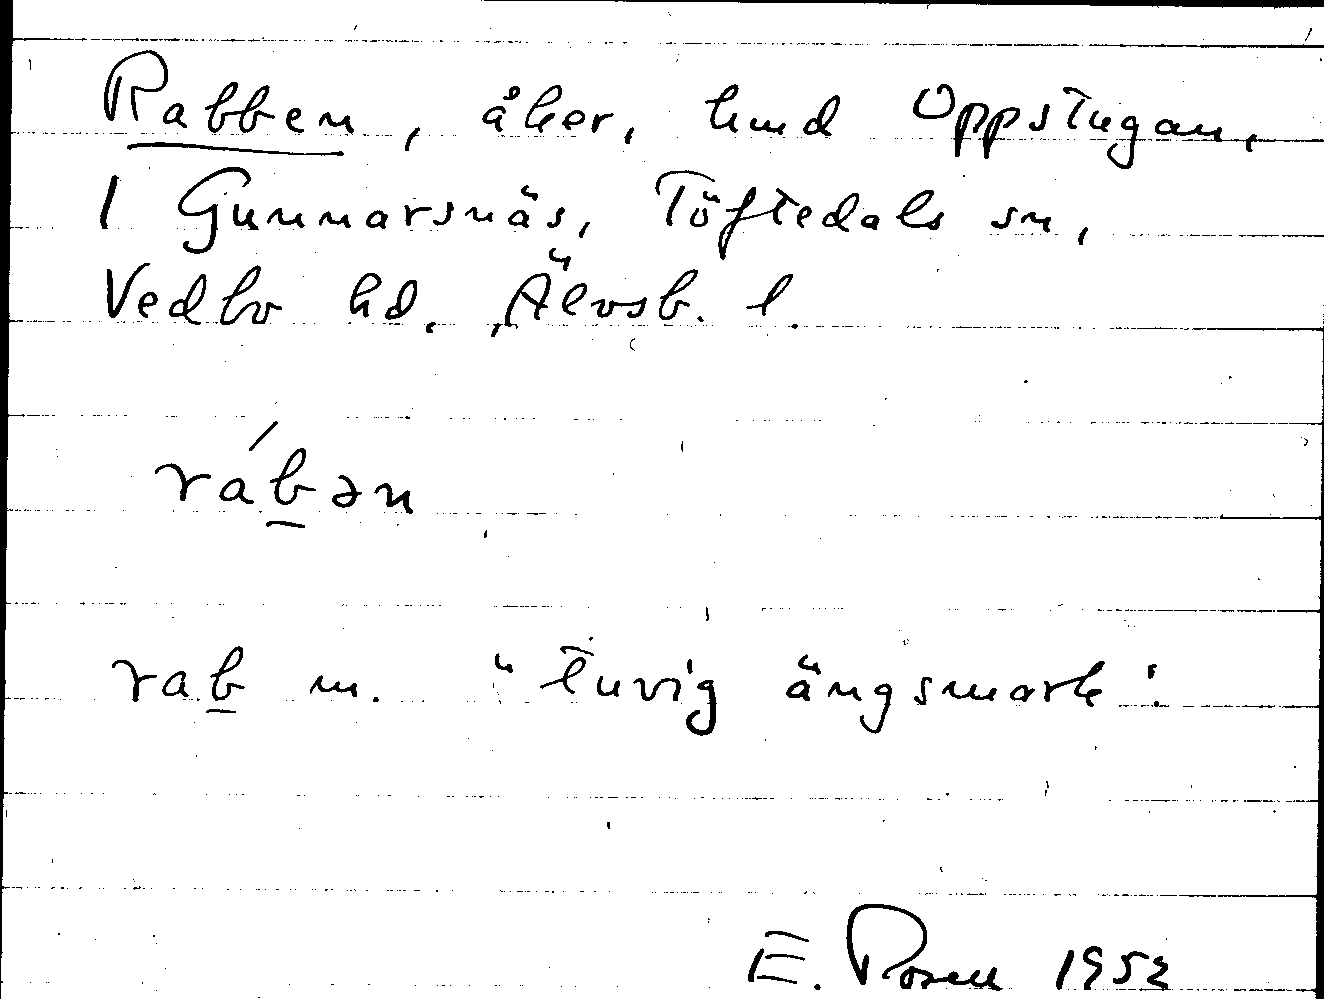 Rabben, åker, hmd Oppstugan,
1 Gunnarsnäs, Töftedals sn,
Vedbo hd, Älvsb. l.
rábən
rab m. "tuvig ängsmark".
E. Rosell 1952